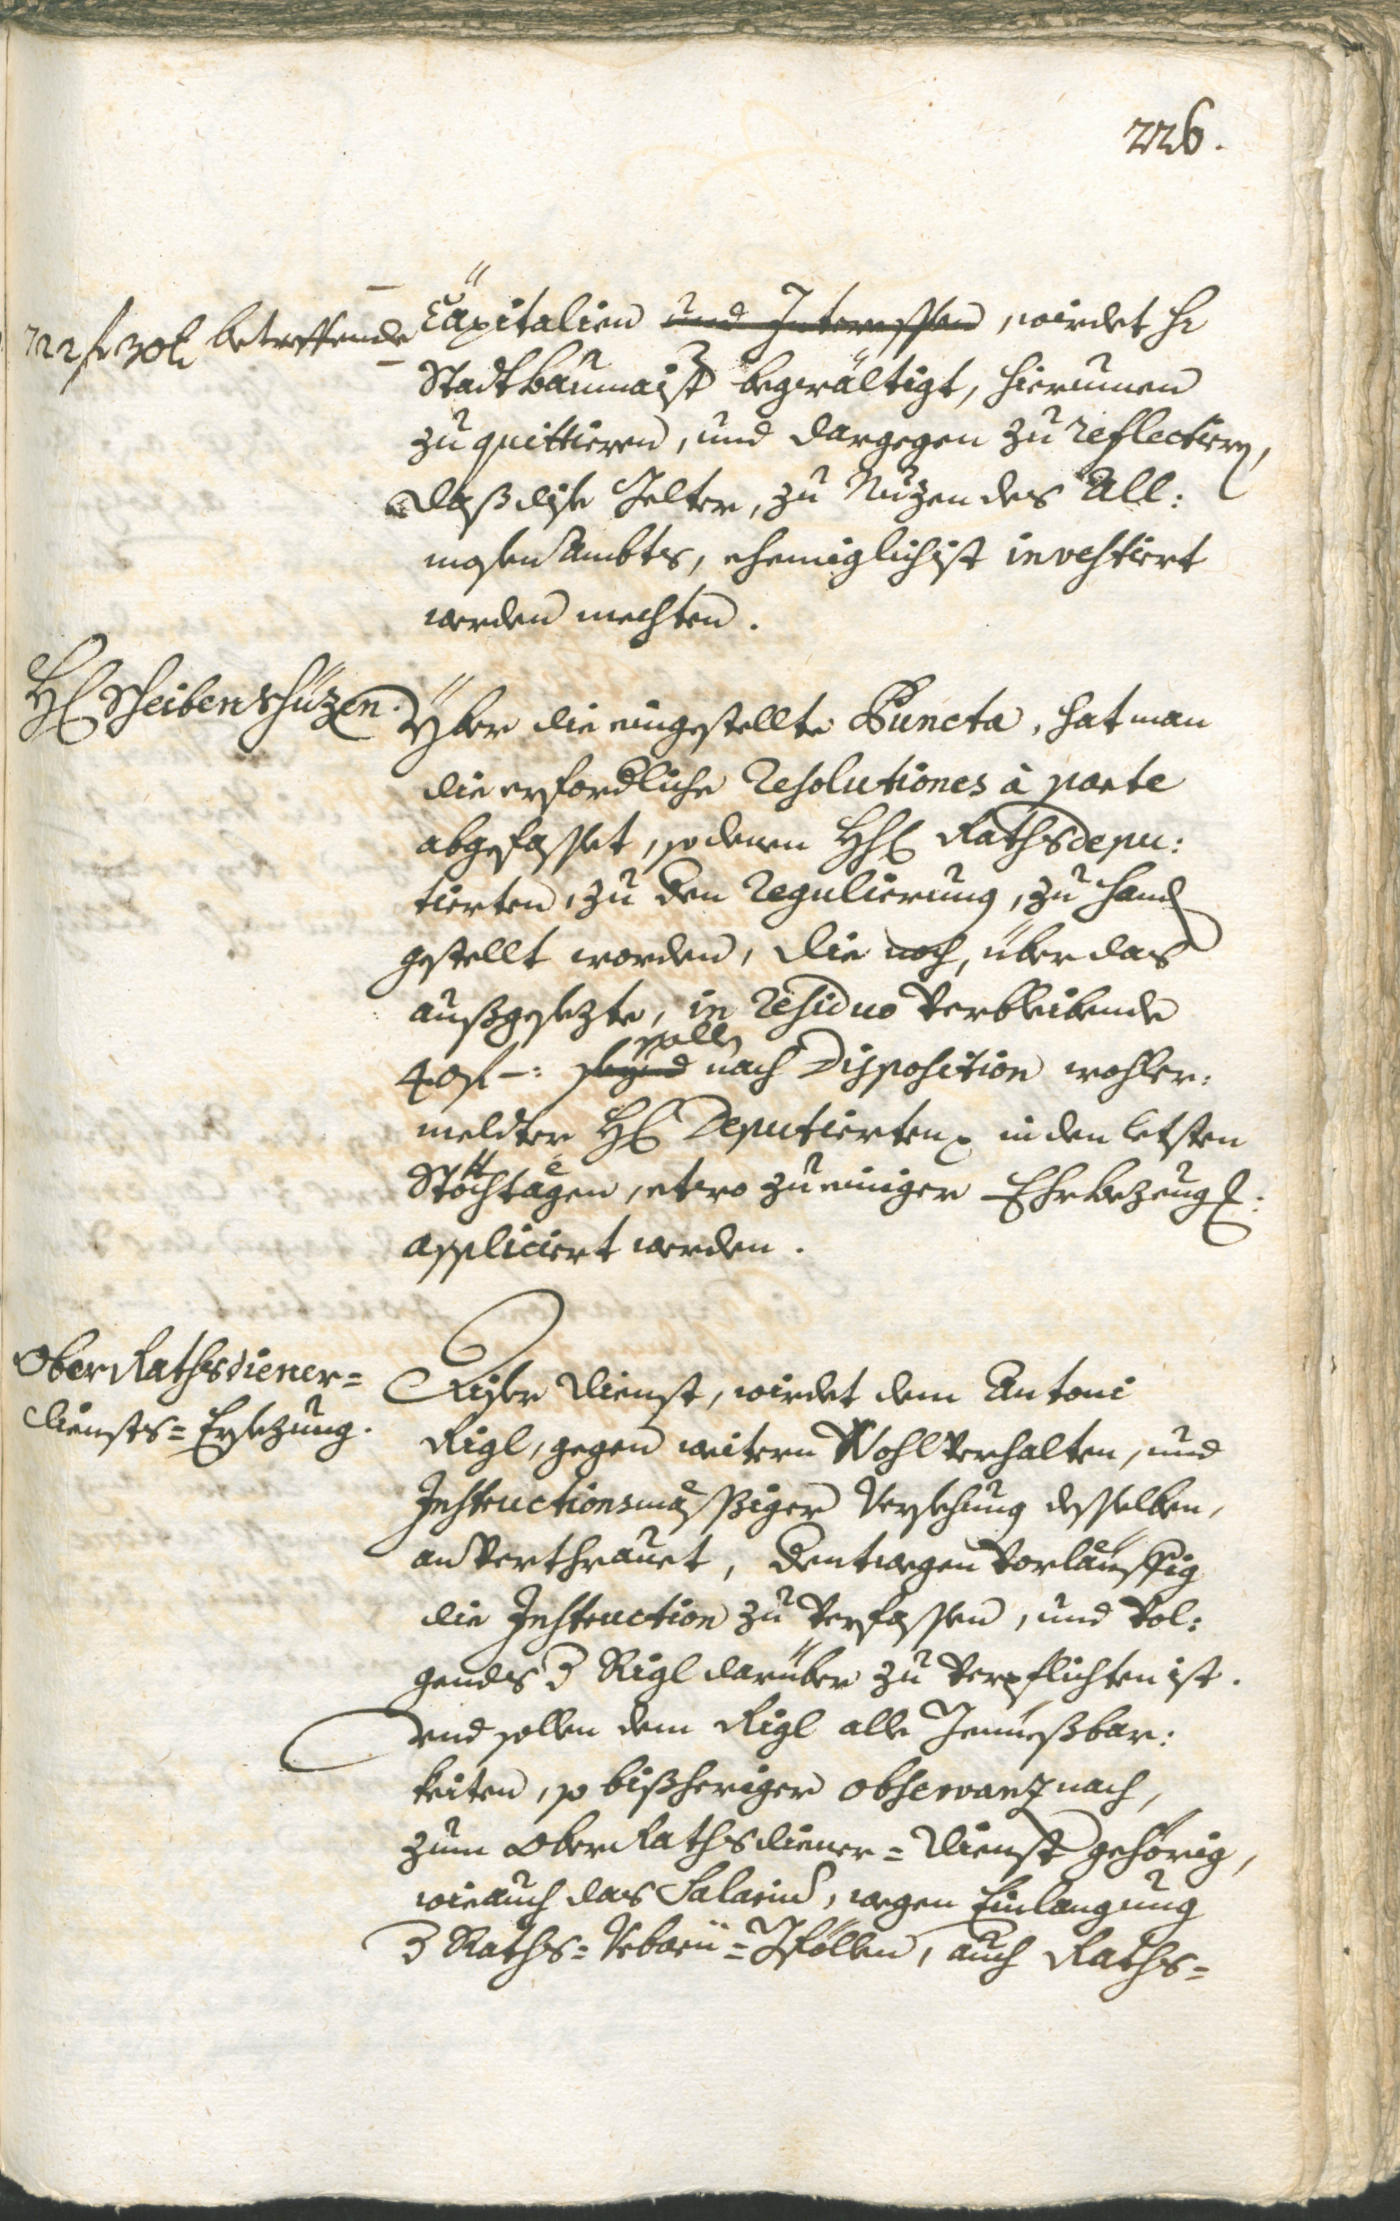 226.
722 fl 30 k betreffende
Capitalien und Interessen, wirdet H
Stadtbaumaist begwältigt, hierumen
zu quittieren, und dargegen zu reflectiern,
daß dise Gelter, zu Nuzen des All:
mosen Ambts, ehemiglichist investiert
werden mechten.
HH Scheibenschüzen.
Yber die eingestellte Puncta, hat man
die erforderliche Resolutiones à parte
abgefasset, so denen HH Rathsdepu:
tierten, zu den Regulierung, zu Hand
gestellt worden, die noch, über das
außgesezte, in residuo verbleibende
40 fl -: seynd solln nach Disposition wohler:
meldter HH Deputierten in den letsten
Stöchtägen, etwo zu einiger Ehrbezeug:
appliciert werden.
Ober Rathsdiener=
diensts= Ersezung.
Diser Dienst, wirdet dem Antoni
Rigl, gegen weitern Wohlverhalten, und
Instructionsmässßiger Versehung desselben,
anverthrauet, dentwegen vorläuffig
die Instruction zu verfassen, und vol:
gends B Rigl darüber zu verpflichten ist.
Und sollen dem Rigl alle Genüeßbar:
keiten, so bißheriger observanz nach,
zum Ober Rathsdiener= Dienst gehörig,
wie auch das Salarium, wegen Einlangung
B Raths= Gföllen, auch Raths=